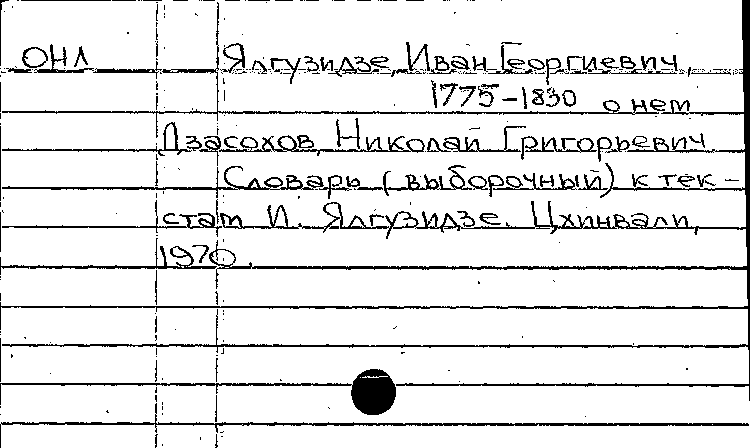 ОНЛ Ялгузидзе, Иван Георгиевич,
1775-1830 о нем
Дзасохов, Николай Григорьевич
Словарь (выборочный) к тек-
стам И. Ялгузидзе. Цхинвали,
1970.